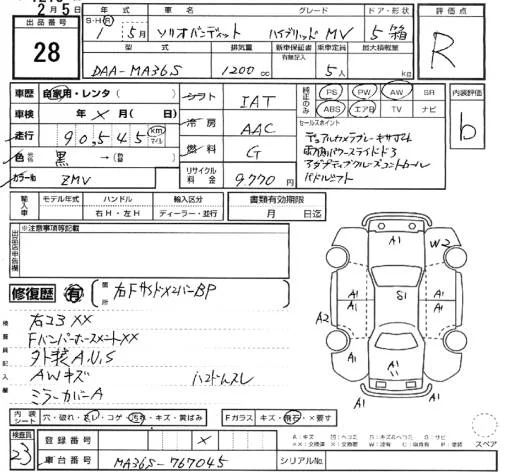 2月5日
出品番号
28
年式 車名 グレード ドア・形状
S・H・R 1年 5月 ソリオバンディット ハイブリッド MV 5 箱
型式 排気量 新車保証書 有無記入 乗車定員 最大積載量
DAA-MA36S 1200 cc 5人 kg
評価点
R
車歴 自家用・レンタ( )
車検 年 × 月( 日)
走行 90,545 km マイル
色 黒 →(替 )
カラーNo ZMV
シフト IAT
冷房 AAC
燃料 G
リサイクル料金 9,770円
純正のみ PS PW AW SR
ABS エアB TV ナビ
セールスポイント
デュアルカメラブレーキサポート
両側パワースライドドア
アダプティブクルーズコントロール
パドルシフト
内装評価
b
輸入車 モデル年式 ハンドル 輸入区分
年 右H・左H ディーラー・並行
書類有効期限
月 日迄
出品店申告欄
※注意事項等記載
修復歴 有
箇所
右FサイドメンバーBP
検査員記入欄
右コアXX
FバンパーホースメントXX
外装A.U.S
AWキズ ハンドルスレ
ミラーカバーA
A1 W2 A1 A1 S1 A1 A1 A2 A1 A1 A1
内装シート 穴・破れ・スレ・コゲ・汚れ・キズ・黄ばみ
Fガラス キズ・飛石・×要す
検査員 23
登録番号 ×
車台番号 MA36S-767045
シリアルNo.
スペア